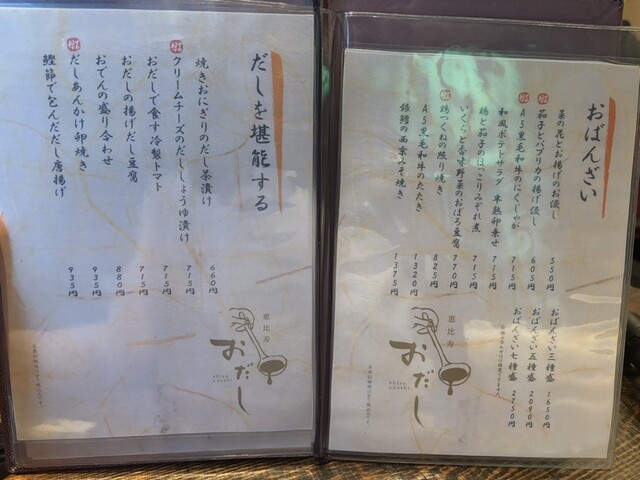 おばんざい
菜の花とお揚げのお浸し 550円
茄子とパプリカの揚げ浸し 605円
A5黒毛和牛のにくじゃが 715円
和風ポテトサラダ 半熟卵乗せ 715円
鶏と茄子のほっこりみぞれ煮 715円
いくらと香味野菜のおぼろ豆腐 770円
鶏つくねの照り焼き 825円
A5黒毛和牛のたたき 1320円
銀鱈の西京みそ焼き 1375円
おばんざい三種盛 1650円
おばんざい五種盛 2090円
おばんざい七種盛 2750円
恵比寿
おだし
だしを堪能する
焼きおにぎりのだし茶漬け 660円
クリームチーズのだししょうゆ漬け 715円
おだしで食す冷製トマト 715円
おだしの揚げだし豆腐 880円
おでんの盛り合わせ 935円
だしあんかけ卵焼き 935円
鰹節で包んだだし唐揚げ
恵比寿
おだし
ebisu
odashi